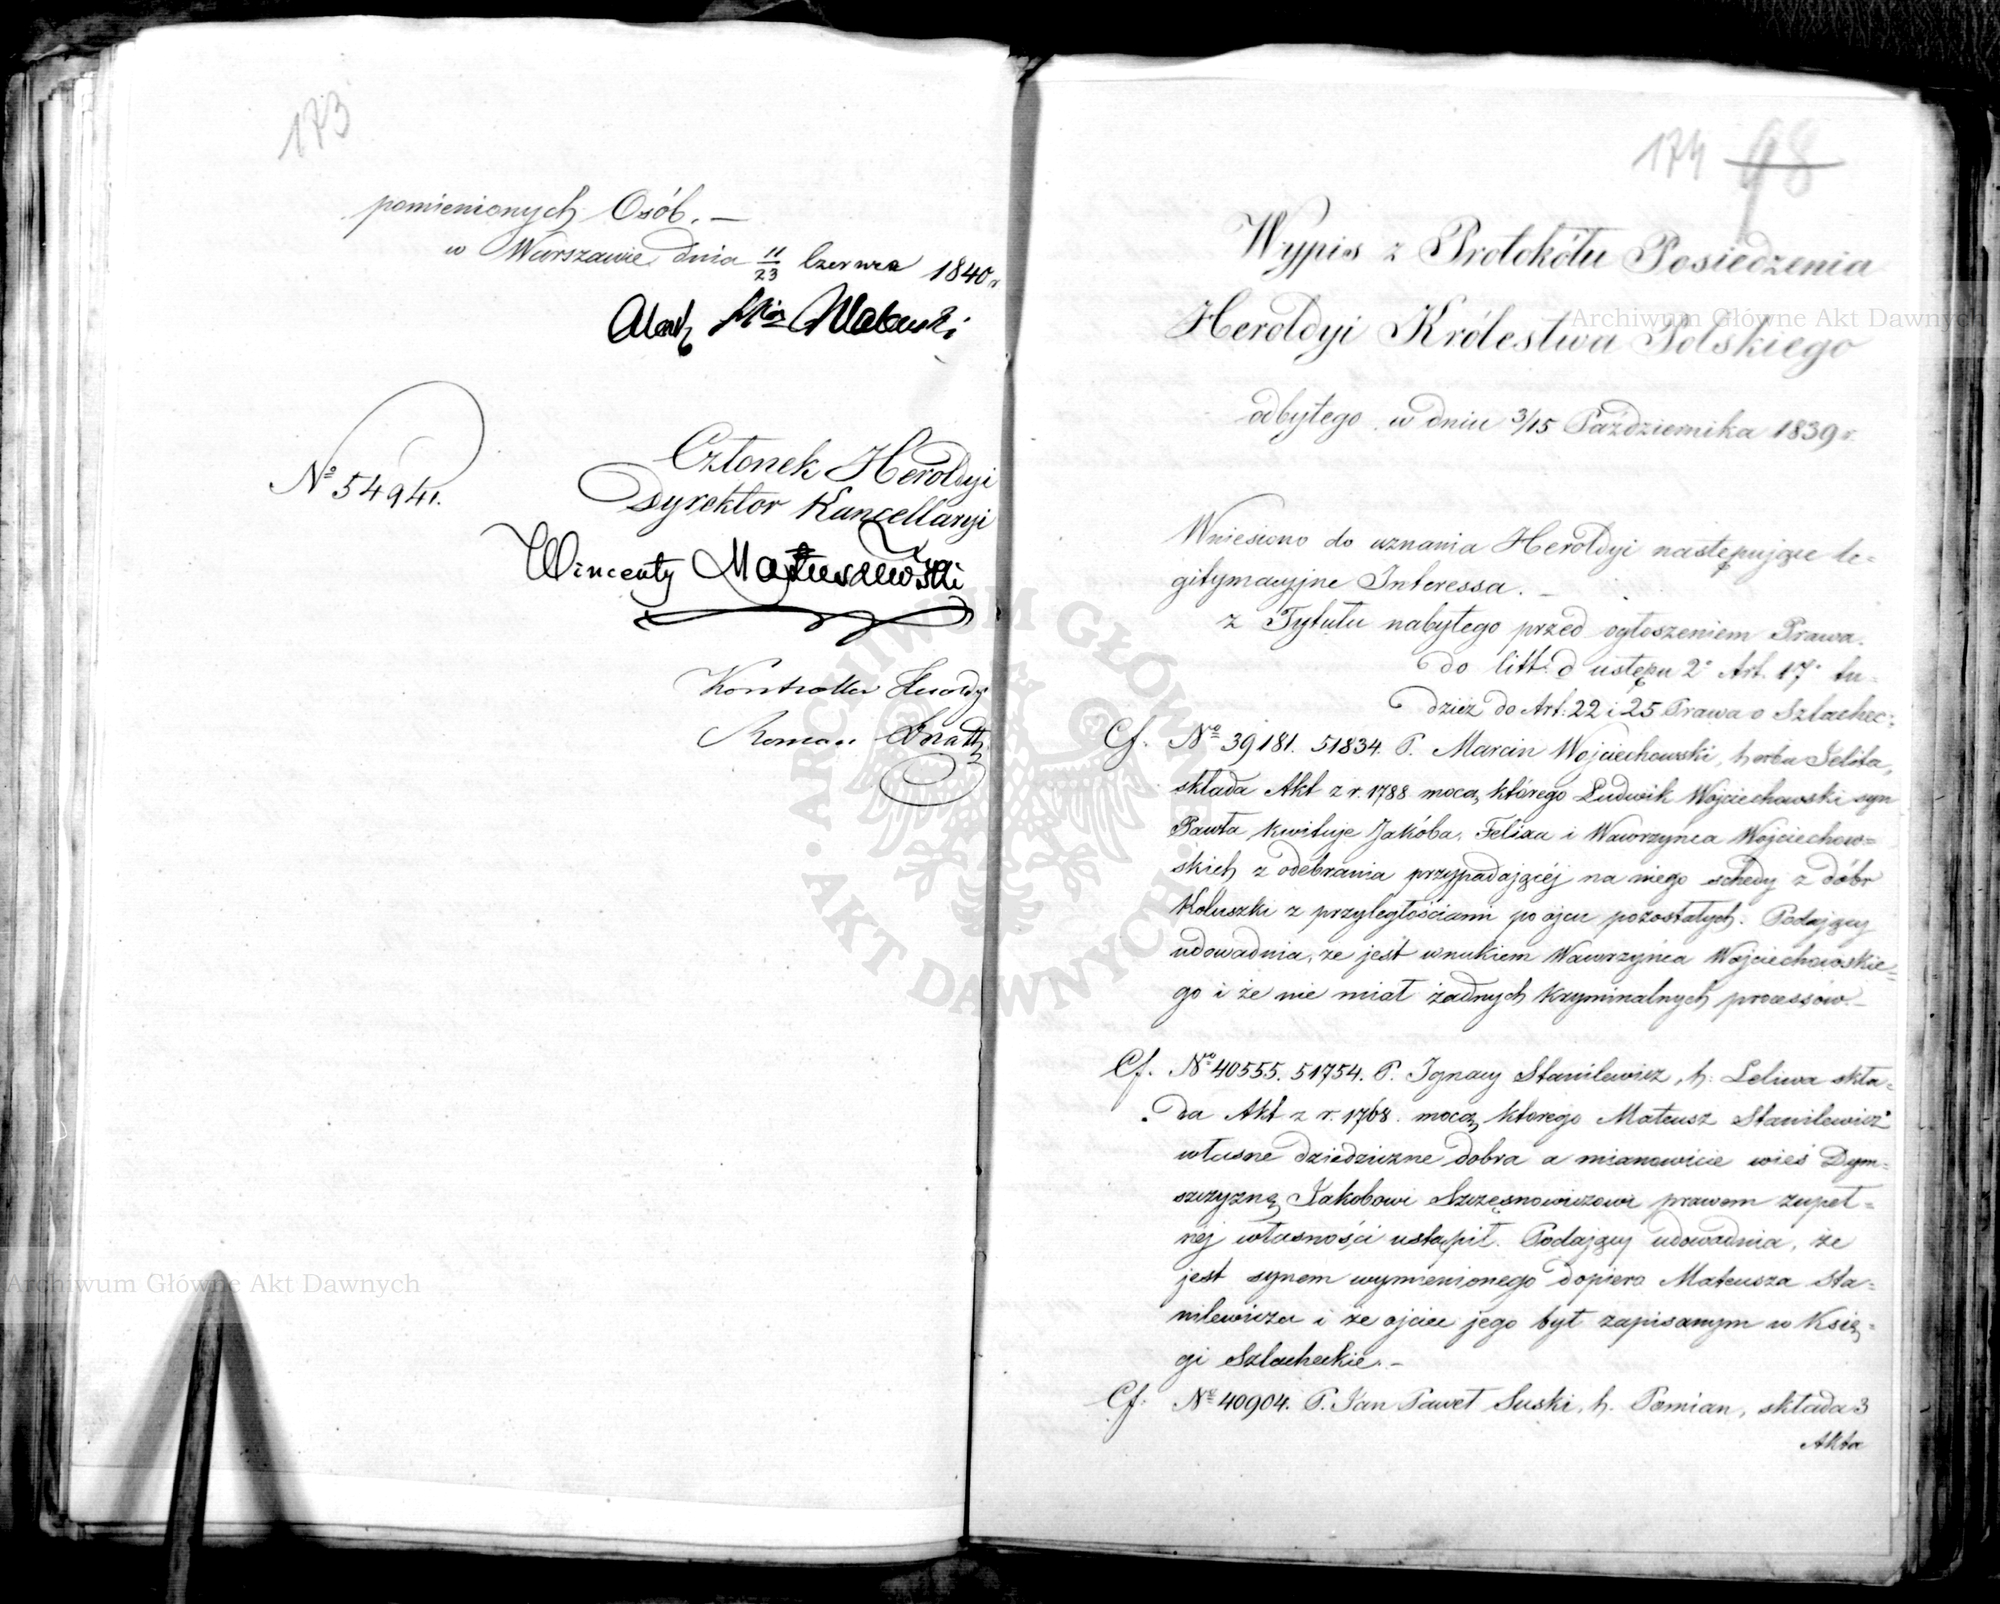 173
pomienionych Osób. —
w Warszawie dnia 11/23 Czerwca 1840 r
Członek Heroldyi
Dyrektor Kancellaryi
Nº 54941.
Wincenty Matuszewski
Kontroller Heroldyi
Roman
174 98
Wypis z Protokółu Posiedzenia
Heroldyi Królestwa Polskiego
odbytego w dniu 3/15 Października 1839 r.
Wniesiono do uznania Heroldyi następujące le=
gitymacyjne Interessa. —
z Tytułu nabytego przed ogłoszeniem Prawa.
do litt. d ustępu 2º Art. 17º tu=
dzież do Art. 22 i 25 Prawa o Szlachec:
Cf. Nº 39181. 51834. P. Marcin Wojciechowski, herbu Jelita,
składa Akt z r. 1788 mocą którego Ludwik Wojciechowski syn
Pawła kwituje Jakóba, Felixa i Wawrzyńca Wojciechow=
skich z odebrania przypadającéj na niego schedy z dóbr
Koluszki z przyległościami po ojcu pozostałych. Podający
udowadnia, że jest wnukiem Wawrzyńca Wojciechowskie=
go i że nie miał żadnych kryminalnych processów. —
Cf. Nº 40555. 51754. P. Ignacy Stanilewicz, h. Leliwa skła=
da Akt z r. 1768. mocą którego Mateusz Stanilewicz
własne dziedziczne dobra a mianowicie wieś Dym=
szczyznę Jakobowi Szczęsnowiczowi prawem zupeł=
néj własności ustąpił. Podający udowadnia, że
jest synem wymienionego dopiero Mateusza Sta=
nilewicza i że ojciec jego był zapisanym w Księ=
gi Szlacheckie. —
Cf. Nº 40904. P. Jan Paweł Suski, h. Pomian, składa 3
Akta
Archiwum Główne Akt Dawnych
Archiwum Główne Akt Dawnych
ARCHIWUM GŁÓWNE · AKT DAWNYCH ·